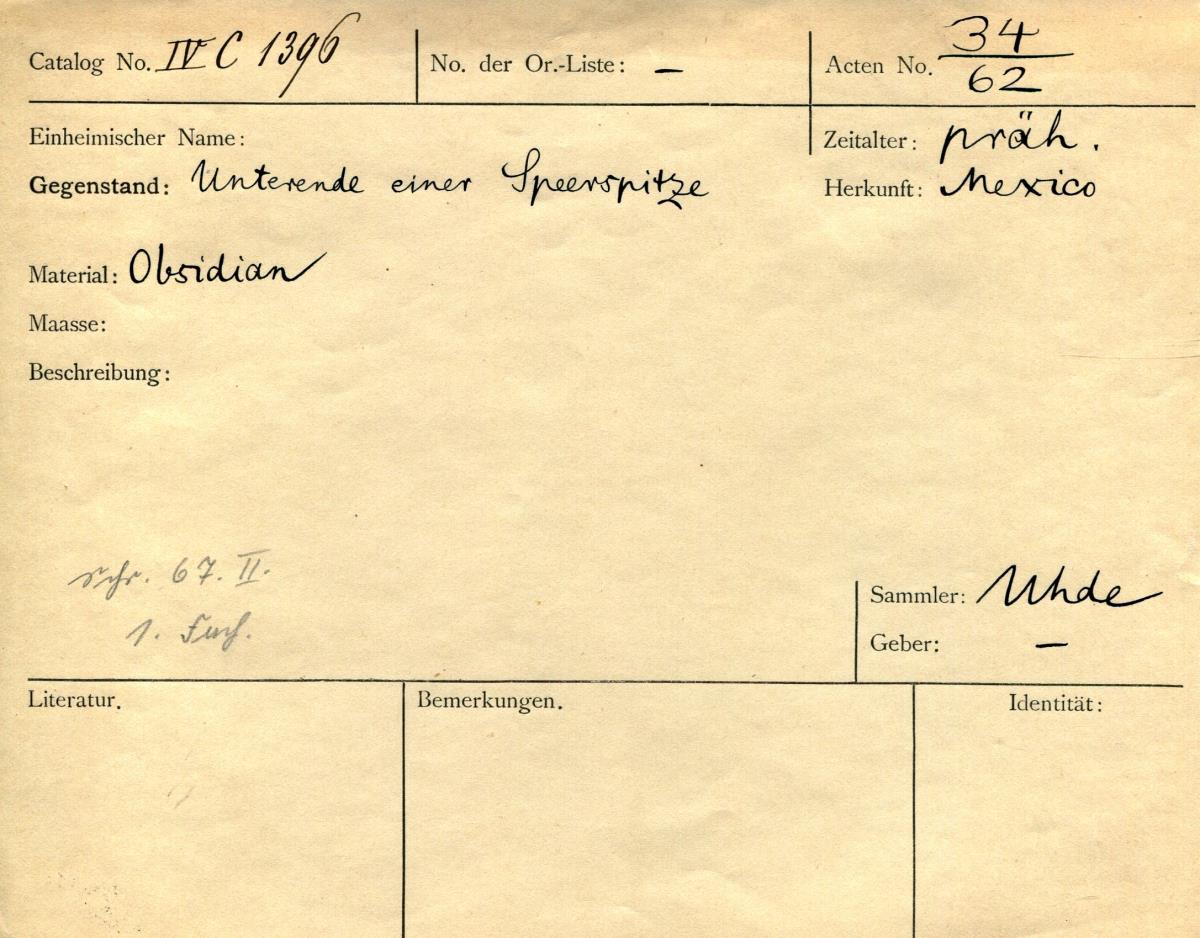 Catalog No. IV C 1396 No. der Or.-Liste: – Acten No. 34/62
Einheimischer Name: Zeitalter: präh.
Gegenstand: Unterende einer Speerspitze Herkunft: Mexico
Material: Obsidian
Maasse:
Beschreibung:
Schr. 67. II.
1. Fach.
Sammler: Uhde
Geber: –
Literatur. Bemerkungen. Identität: